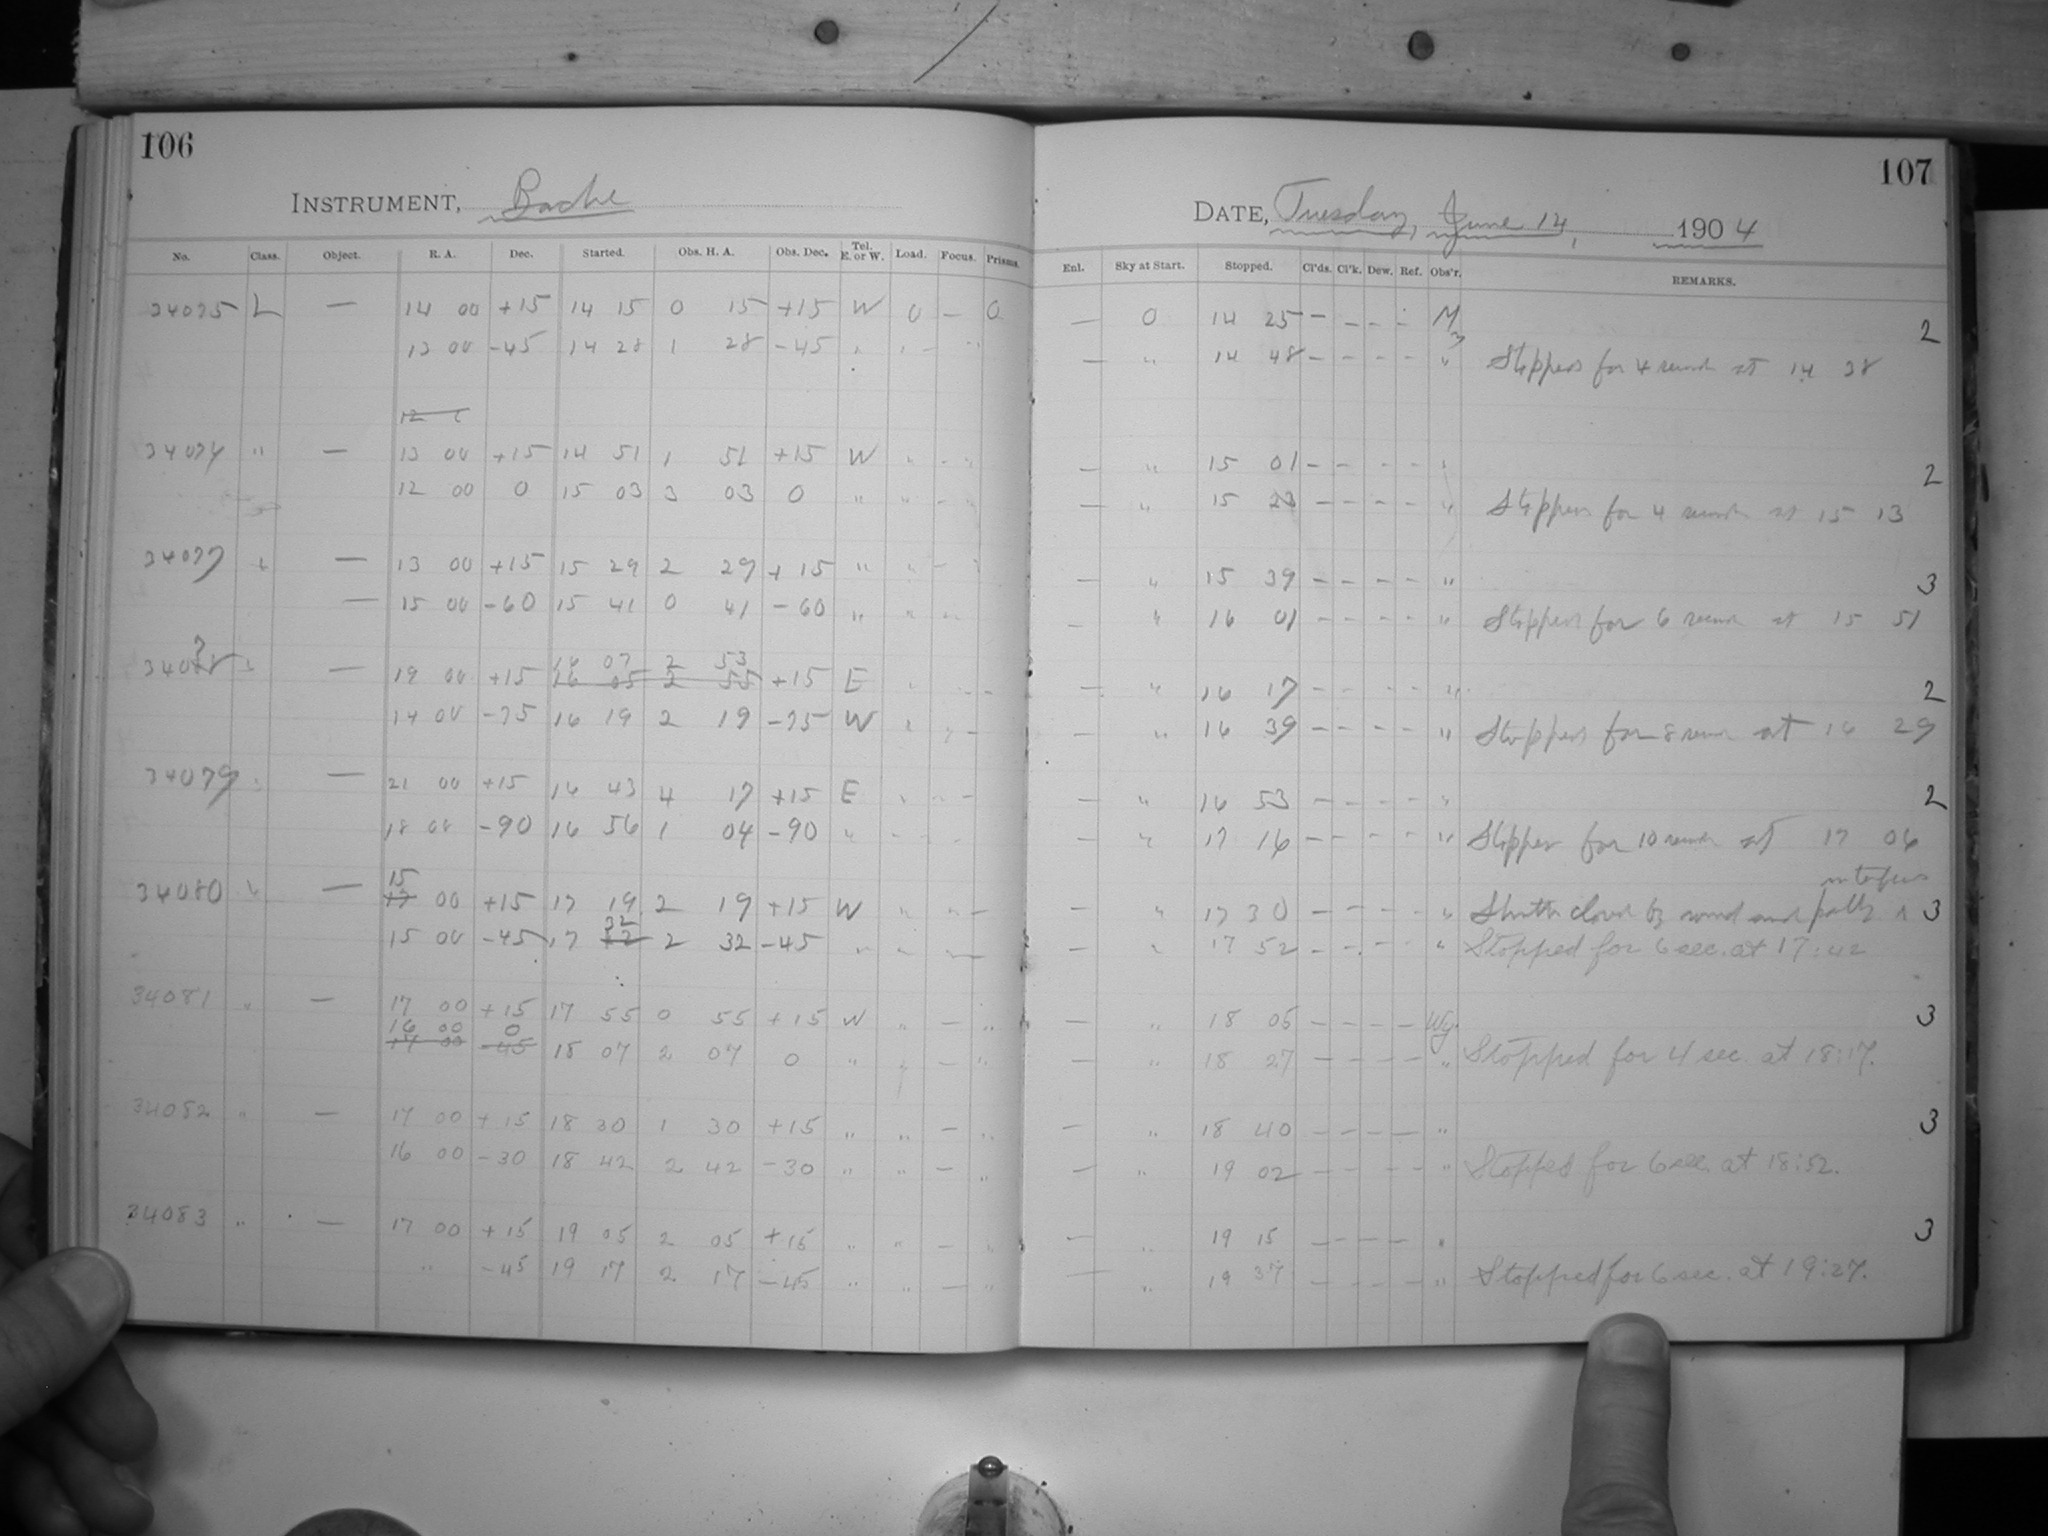 106
INSTRUMENT, Bache
No. Class. Object. R. A. Dec. Started. Obs. H. A. Obs. Dec. Tel. E. or W. Load. Focus. Prisms.
34075 L — 14 00 +15 14 15 0 15 +15 W 0 — 0
13 00 -45 14 28 1 28 -45 " " — "
12
34076 " — 13 00 +15 14 51 1 51 +15 W " - "
12 00 0 15 03 3 03 0 " " - "
34077 " — 13 00 +15 15 29 2 29 +15 " " - "
— 15 00 -60 15 41 0 41 -60 " " - "
34078 " — 19 00 +15 16 07 2 53 +15 E " - -
16 05 2 55
14 00 -75 16 19 2 19 -75 W " " -
34079 " — 21 00 +15 16 43 4 17 +15 E " - -
18 00 -90 16 56 1 04 -90 " - - -
34080 " — 15 17 00 +15 17 19 2 19 +15 W " " -
15 00 -45 17 32 12 2 32 -45 " " " -
34081 " — 17 00 +15 17 55 0 55 +15 W " — "
16 00 0
17 00 -45 18 07 2 07 0 " " — "
34082 " — 17 00 +15 18 30 1 30 +15 " " — "
16 00 -30 18 42 2 42 -30 " " — "
34083 " — 17 00 +15 19 05 2 05 +15 " " — "
" -45 19 17 2 17 -45 " " — "
107
DATE, Tuesday, June 14, 1904
Enl. Sky at Start. Stopped. Cl'ds. Cl'k. Dew. Ref. Obs'r. REMARKS.
— 0 14 25 - - - - M 2
— " 14 48 - - - - " Stopped for 4 seconds at 14 38
— " 15 01 - - - - " 2
— " 15 23 - - - - " Stopped for 4 seconds at 15 13
— " 15 39 - - - - " 3
— " 16 01 - - - - " Stopped for 6 seconds at 15 51
— " 16 17 - - - - " 2
— " 16 39 - - - - " Stopped for 8 seconds at 16 29
— " 16 53 - - - - " 2
— " 17 16 - - - - " Stopped for 10 seconds at 17 06
— " 17 30 - - - - " Shutter closed by wind and 3
— " 17 52 - - - - " Stopped for 6 sec. at 17:42
— " 18 05 - - - - Wy. 3
— " 18 27 - - - - " Stopped for 4 sec. at 18:17.
— " 18 40 - - - - " 3
— " 19 02 - - - - " Stopped for 6 sec. at 18:52.
— " 19 15 - - - - " 3
— " 19 37 - - - - " Stopped for 6 sec. at 19:27.